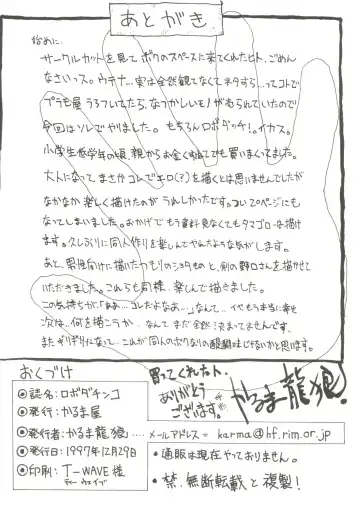 あとがき
始めに…
サークルカットを見てボクのスペースに来てくれたヒト、ごめん
なさいっス。ウテナ…実は全然観てなくてネタすら…ってコトで
プラモ屋うろついてたら、なつかしいモノがあられていたので
今回はソレでやりました。もちろんロボダッチ!。イカス。
小学生低学年の頃、親からお金くすねてでも買いまくってました。
大人になってまさかコレでエロ(?)を描くとは思いませんでしたが
なかなか楽しく描けたのがうれしかったです。つい20ページにも
なってしまいました。おかげでもう資料見なくてもタマゴロー描け
ます。久しぶりに同人作りを楽しんでやんたような気がします。
あと、男性向けに描いたつもりのショタものと、剣の野口さんを描かせて
いただきました。これらも同様、楽しんで描きました。
この気持ちが、「ああ…コレだよなあ…」なんて…イヤもう本当に幸せ
次は…何を描こうか…なんてまだ全然決まってませんです。
またギリギリになって…これが同人のボクなりの醍醐味じゃないかと思います。
おくづけ
◎誌名:ロボダチンコ
◎発行:かるま屋
◎発行者:かるま龍狼
◎発行日:1997年12月29日
◎印刷:T-WAVE様
ティーウェイブ
買ってくれたヒト、
ありがとう
ございます。
かるま龍狼!
メールアドレス= karma@hf.rim.or.jp
・通販は現在やっておりません。
・禁.無断転載と複製!